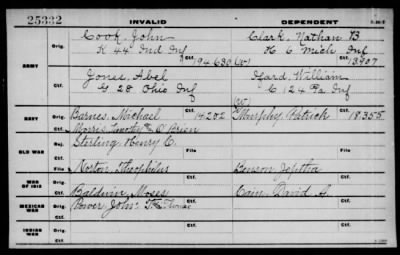 25332 INVALID DEPENDENT
Cook, John Clark, Nathan B
Orig. K 44 Ind Inf H 6 Mich Inf
Ctf. 194630 (W) 13907
ARMY
Jones, Abel Ward, William
Orig. G 28 Ohio Inf C 124 Pa Inf
Ctf. (W)
NAVY Orig. Barnes, Michael 14202 Murphy Patrick 18355
Ctf. Morris, Timothy O'Brien
OLD WAR Rej. Sterling Henry C.
File File
Norton, Theophilus Benson Jeptha
WAR OF 1812 Orig.
Ctf. Baldwin, Moses Cain, David A.
MEXICAN WAR Orig. Power John
Ctf. Ctf.
INDIAN WAR Orig.
Ctf. Ctf.